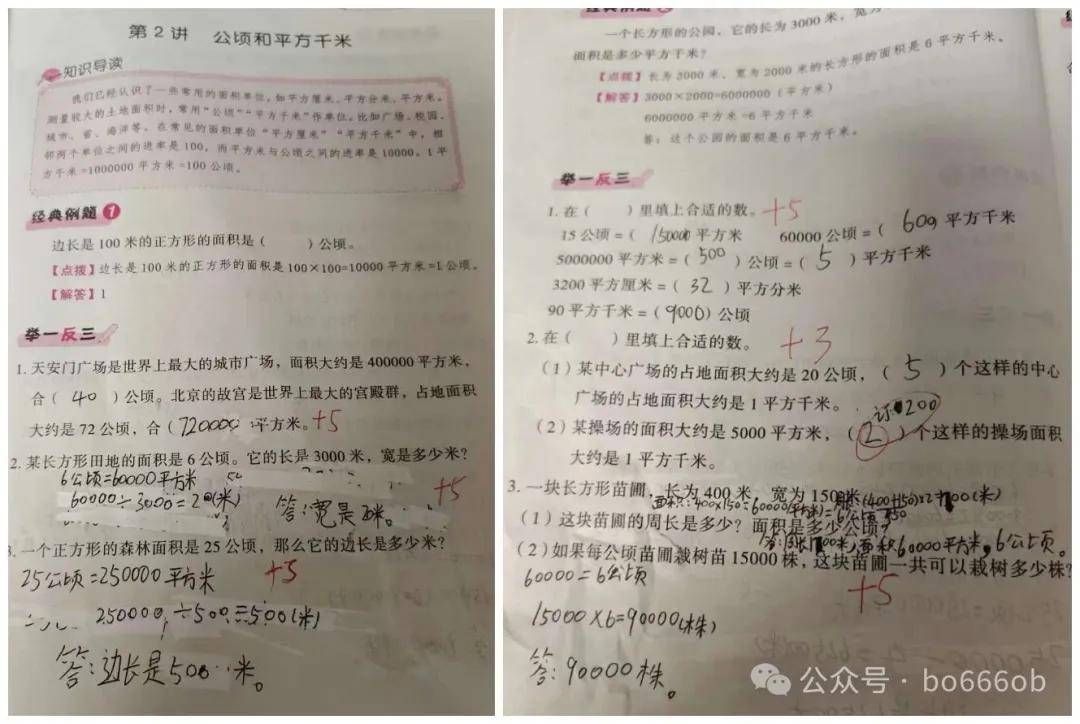 第2讲 公顷和平方千米
知识导读
我们已经认识了一些常用的面积单位,如平方厘米、平方分米、平方米。
测量较大的土地面积时,常用“公顷”“平方千米”作单位。比如广场、校园、
城市、省、海洋等。在常见的面积单位“平方厘米”“平方千米”中,相
邻两个单位之间的进率是100,而平方米与公顷之间的进率是10000。1平
方千米=1000000平方米=100公顷。
经典例题1
边长是100米的正方形的面积是( )公顷。
【点拨】边长是100米的正方形的面积是100×100=10000平方米=1公顷。
【解答】1
举一反三
1.天安门广场是世界上最大的城市广场,面积大约是400000平方米,
合(40)公顷。北京的故宫是世界上最大的宫殿群,占地面积
大约是72公顷,合(720000)平方米。+5
2.某长方形田地的面积是6公顷。它的长是3000米,宽是多少米?
6公顷=60000平方米
60000÷3000=20(米)
答:宽是 米。
+5
3.一个正方形的森林面积是25公顷,那么它的边长是多少米?
25公顷=250000平方米
250000÷500=500(米)
答:边长是500米。
经典例题
一个长方形的公园,它的长为3000米,宽为
面积是多少平方千米?
【点拨】长为3000米、宽为2000米的长方形的面积是6平方千米。
【解答】3000×2000=6000000(平方米)
6000000平方米=6平方千米
答:这个公园的面积是6平方千米。
举一反三
1.在( )里填上合适的数。+5
15公顷=(150000平方米 60000公顷=(600)平方千米
5000000平方米=(500)公顷=(5)平方千米
3200平方厘米=(32)平方分米
90平方千米=(9000)公顷
2.在( )里填上合适的数。+3
(1)某中心广场的占地面积大约是20公顷,(5)个这样的中心
广场的占地面积大约是1平方千米。
订200
(2)某操场的面积大约是5000平方米,(2)个这样的操场面积
大约是1平方千米。
3.一块长方形苗圃,长为400米,宽为150米。
面积:400×150=60000(平方米)=6公顷
(400+150)×2
(1)这块苗圃的周长是多少?面积是多少公顷?
面积60000平方米,6公顷。
(2)如果每公顷苗圃栽树苗15000株,这块苗圃一共可以栽树多少株?
60000=6公顷
+5
15000×6=90000(株)
答:90000株。
公众号·bo666ob